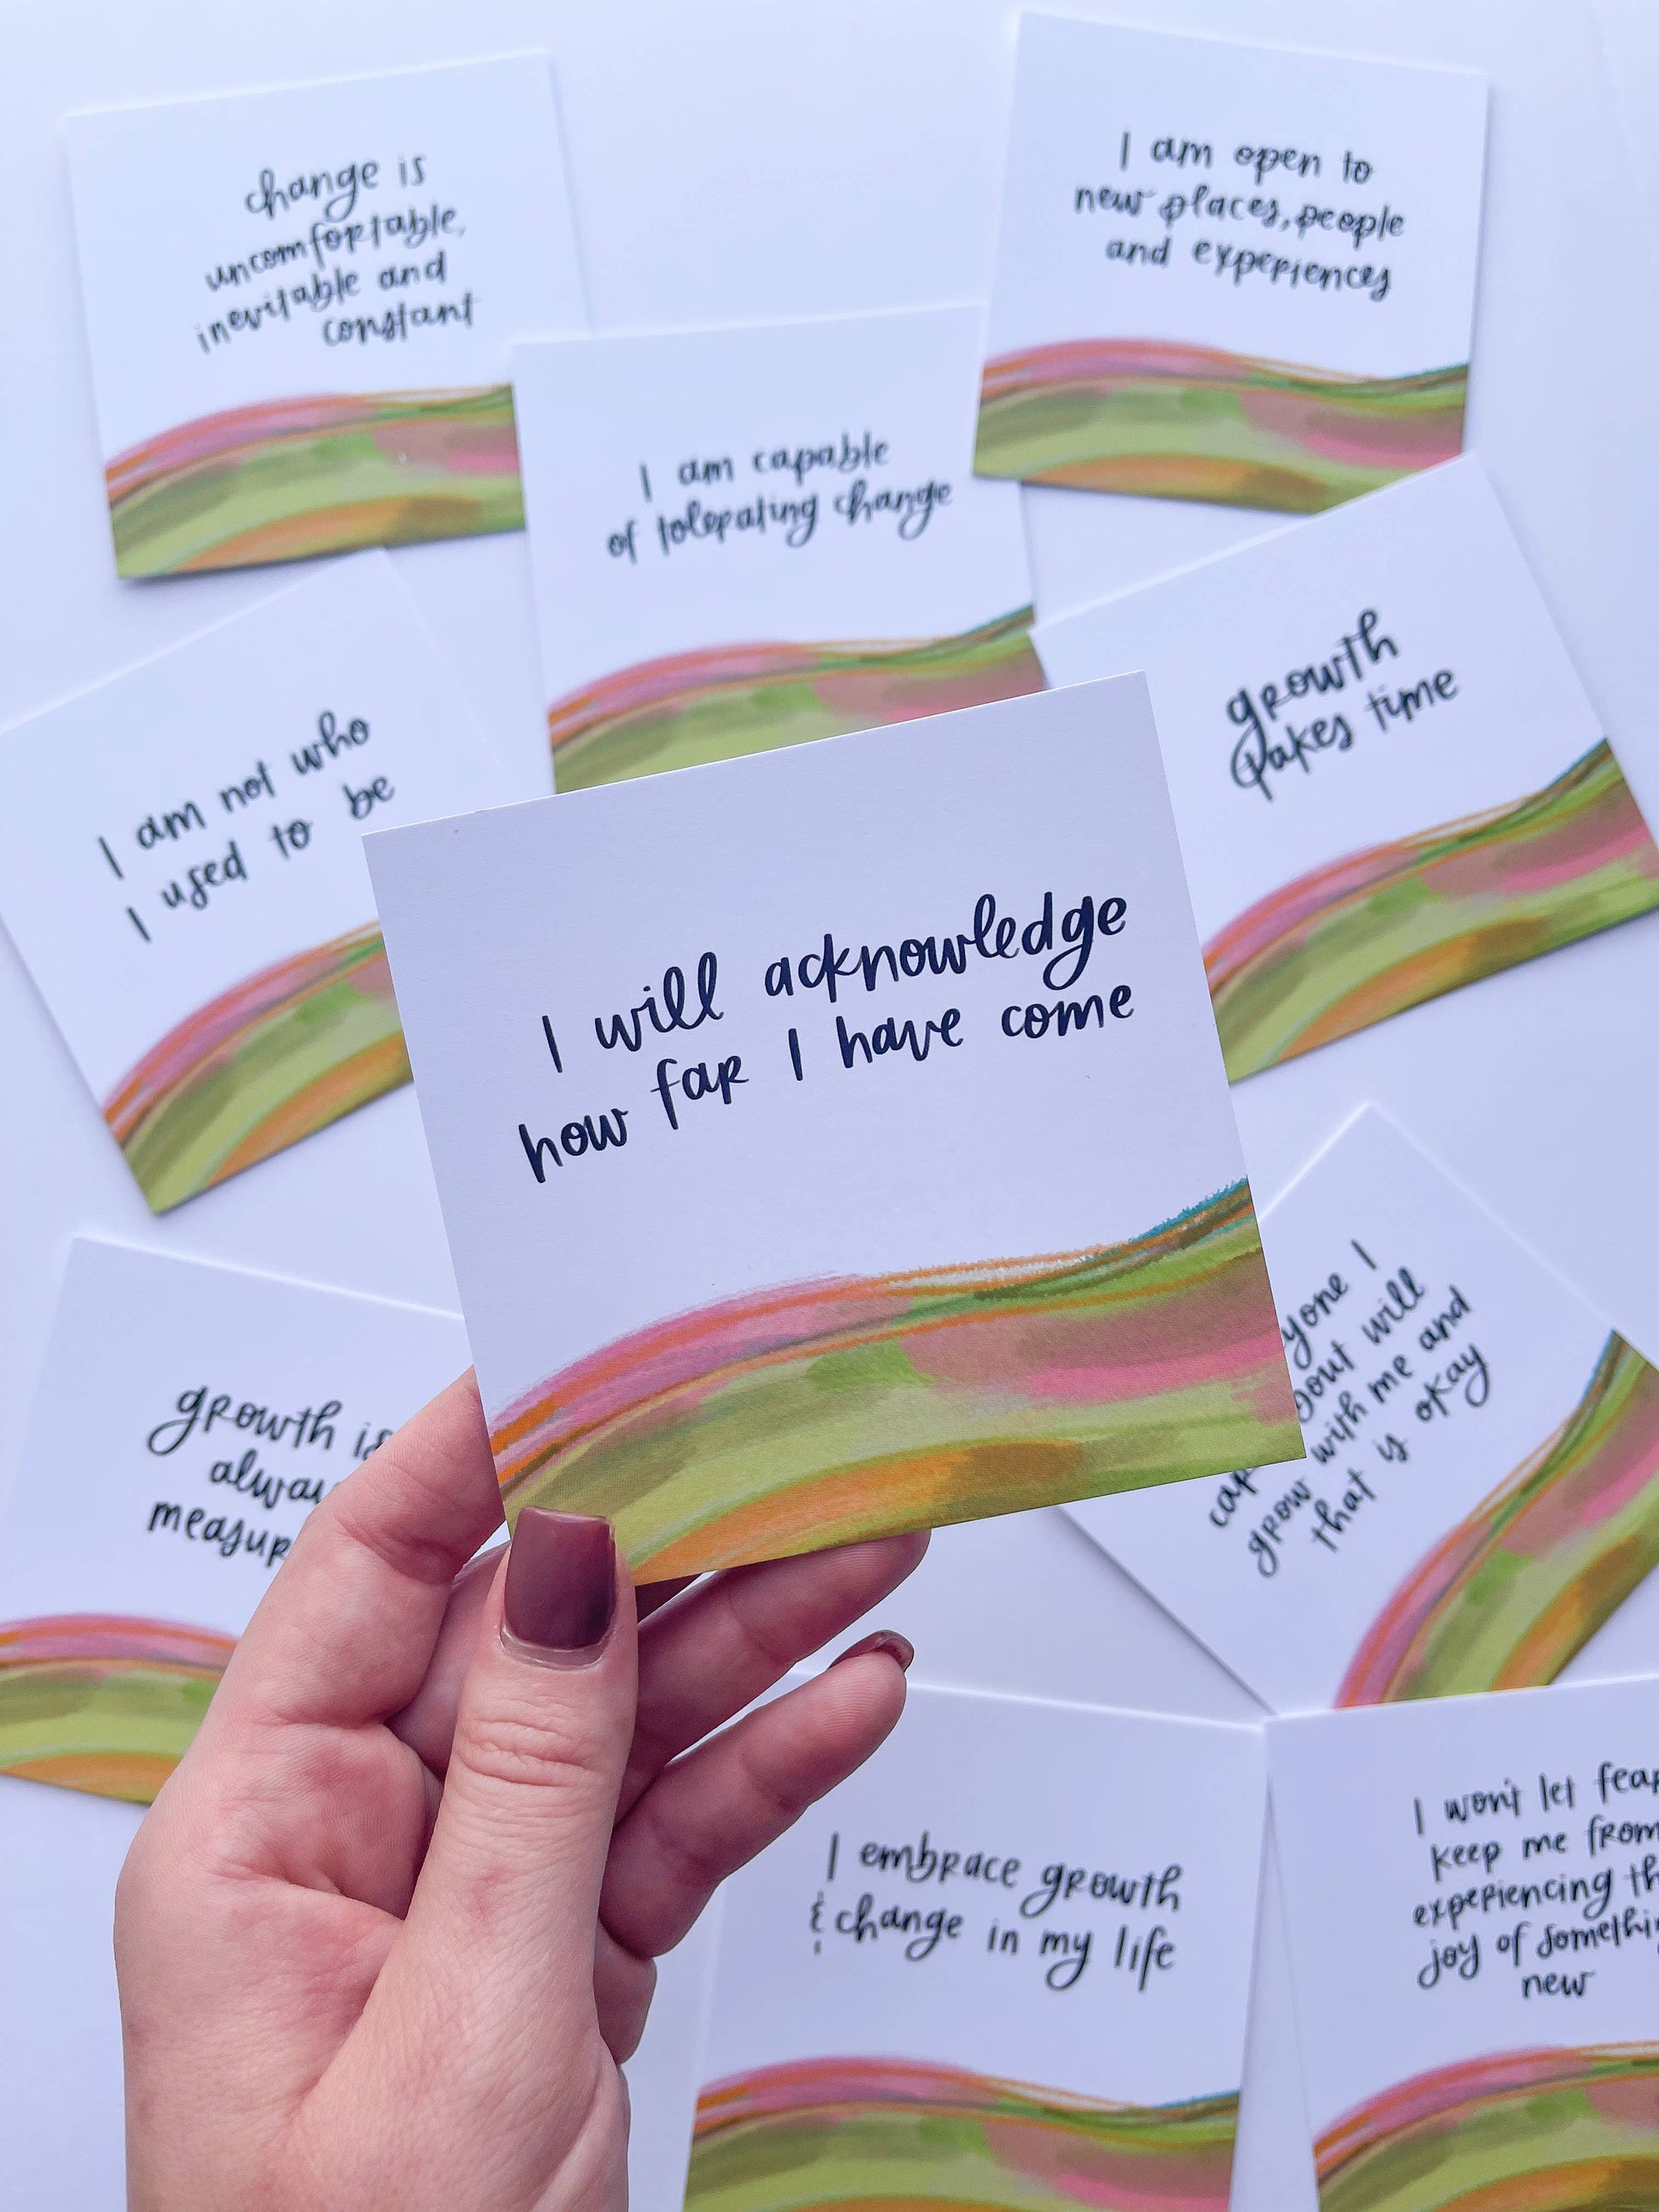 change is
uncomfortable,
inevitable and
constant
I am open to
new places, people
and experiences
I am capable
of tolerating change
growth
takes time
I am not who
I used to be
I will acknowledge
how far I have come
growth is
I
will
grow with me and
that is okay
I embrace growth
& change in my life
I won't let fear
keep me from
experiencing
joy of
new